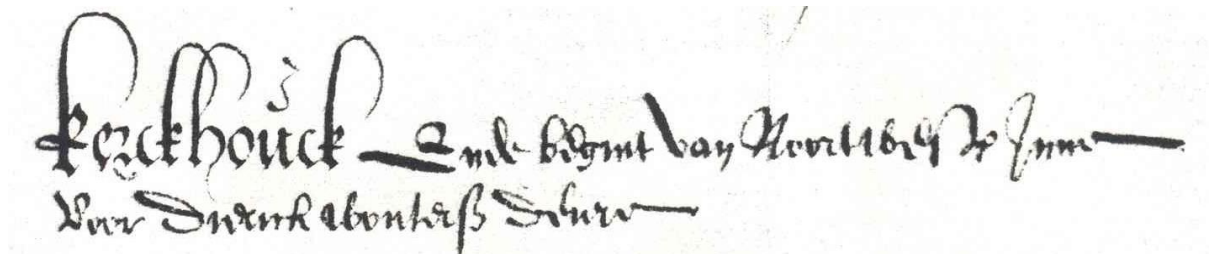 kerckhouck Ende begint van Noortwest Inne
Voor Dierick wouterss deure